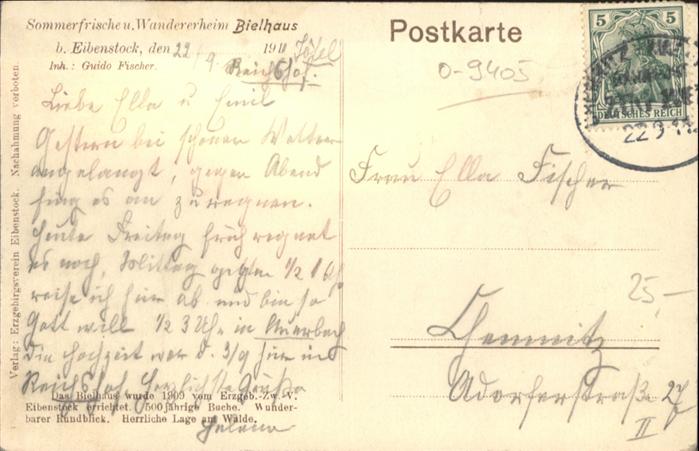 Sommerfrische u. Wandererheim Bielhaus
b. Eibenstock, den 22/9. 1911
Inh.: Guido Fischer.
Reichshof.
Liebe Ella u Emil
Gestern bei schönem Wetter
angelangt, gegen Abend
fing es an zu regnen.
Heute Freitag früh regnet
es noch, Mittag gegen 1/2 1 Uhr
reise ich hier ab und bin so
Gott will 1/2 3 Uhr in Auerbach
Die Hochzeit war d. 3/9 hier im
Reichshof. Herzlichste Grüße
Helene
Das Bielhaus wurde 1909 vom Erzgeb.-Zw.-V.
Eibenstock errichtet. 500jährige Buche. Wunder-
barer Rundblick. Herrliche Lage am Walde.
Verlag: Erzgebirgsverein Eibenstock. Nachahmung verboten.
Postkarte
0-9405
5 5
DEUTSCHES REICH
22 9 1
Frau Ella Fischer
25,-
Chemnitz
Adorferstraße 27
II